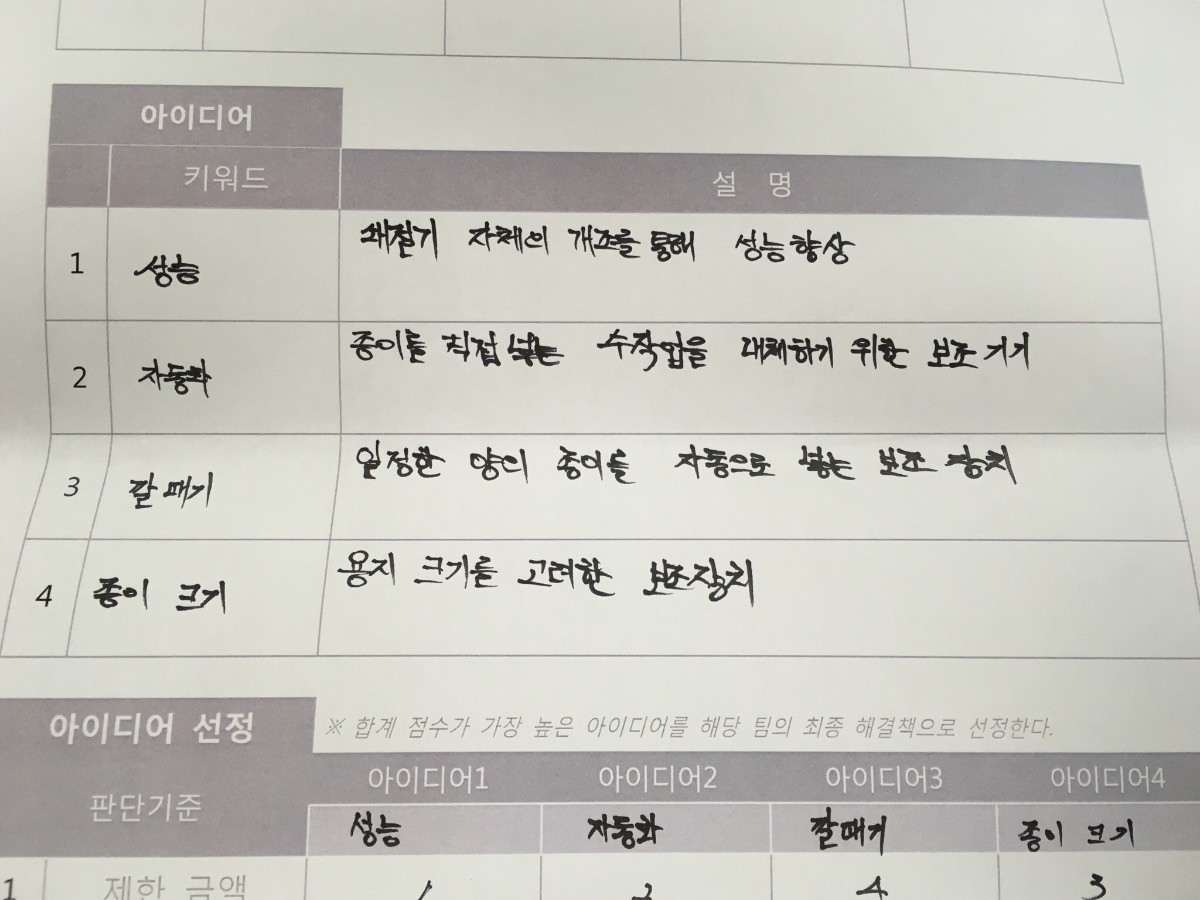 아이디어
키워드 설 명
1 성능 쇄절기 자체의 개조를 통해 성능향상
2 자동화 종이를 직접 넣는 수작업을 대체하기 위한 보조기기
3 깔때기 일정한 양의 종이를 자동으로 넣는 보조 장치
4 종이 크기 용지 크기를 고려한 보조장치
아이디어 선정 ※ 합계 점수가 가장 높은 아이디어를 해당 팀의 최종 해결책으로 선정한다.
판단기준 아이디어1 아이디어2 아이디어3 아이디어4
성능 자동화 깔때기 종이 크기
1 제한 금액 1 2 4 3